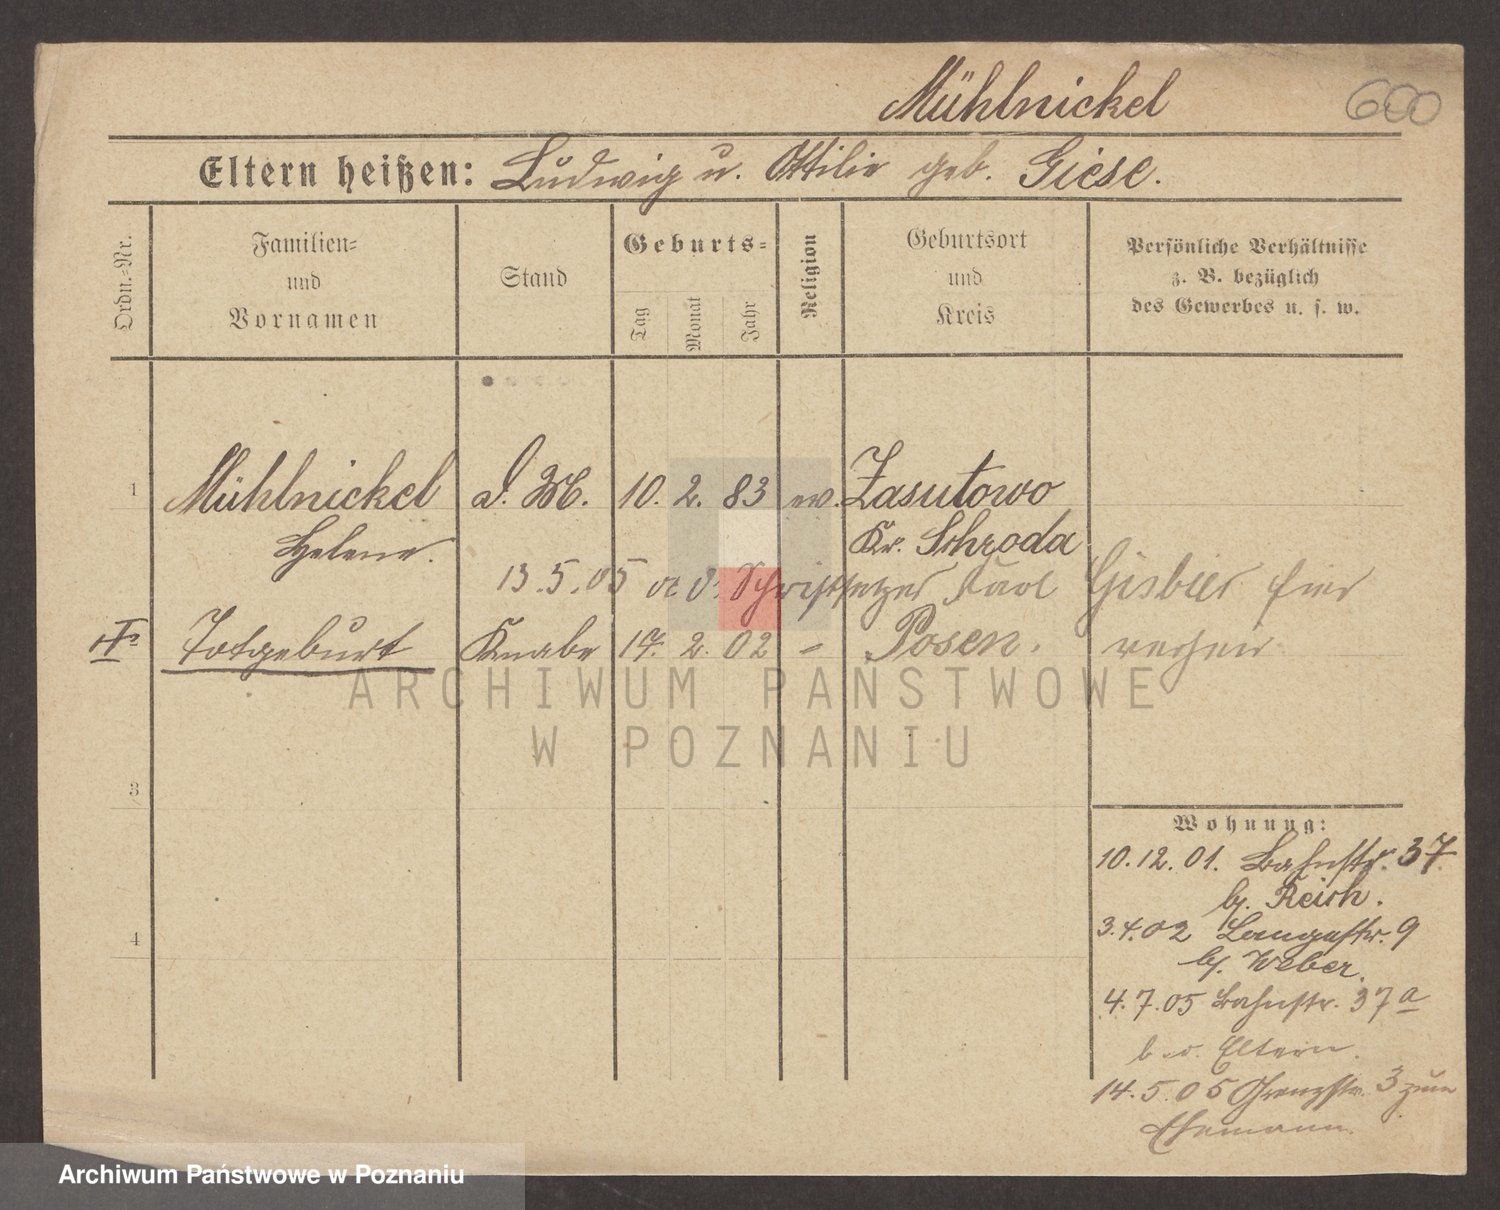 Mühlnickel
600
Eltern heißen: Ludwig u. Ottilie geb. Giese.
Ordn.=Nr.
Familien=
und
Vornamen
Stand
Geburts=
Tag
Monat
Jahr
Religion
Geburtsort
und
Kreis
Persönliche Verhältnisse
z. B. bezüglich
des Gewerbes u. s. w.
1 Mühlnickel d. M. 10. 2. 83 ev. Zasutowo
Helene. Kr. Schroda
13.5.05 Schriftsetzer Karl hier
Totgeburt Knabe 17. 2. 02 - Posen.
3
4
Wohnung:
10.12.01. Bahnstr. 37
bj. Reich.
3.4.02 Langestr. 9
bj. Weber.
4.7.05 Bahnstr. 37a
b. d. Eltern.
14.5.05 Grenzstr. 3 zum
Ehemann.
ARCHIWUM PAŃSTWOWE
W POZNANIU
Archiwum Państwowe w Poznaniu